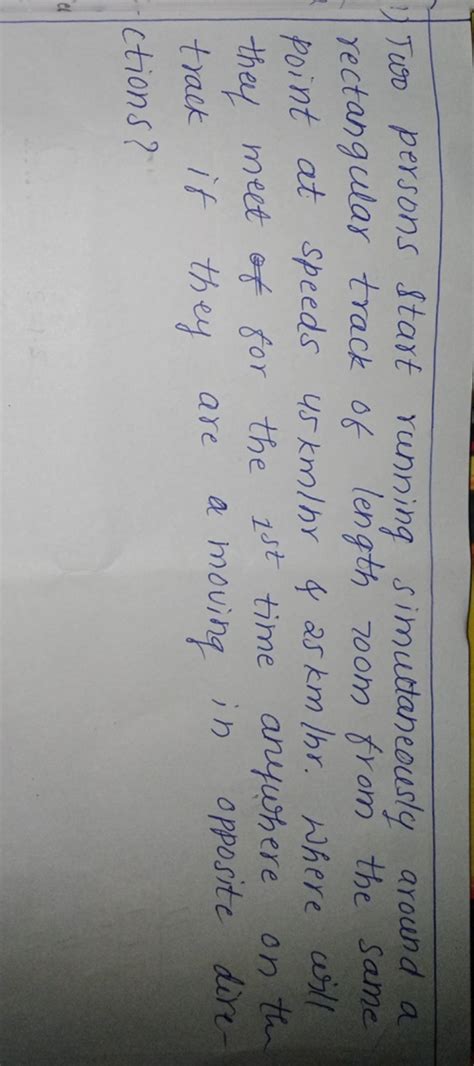 1) Two persons start running simultaneously around a
rectangular track of length 700m from the same
point at speeds 45km/hr & 25km/hr. Where will
they meet of for the 1st time anywhere on the
track if they are a moving in opposite dire-
ctions?